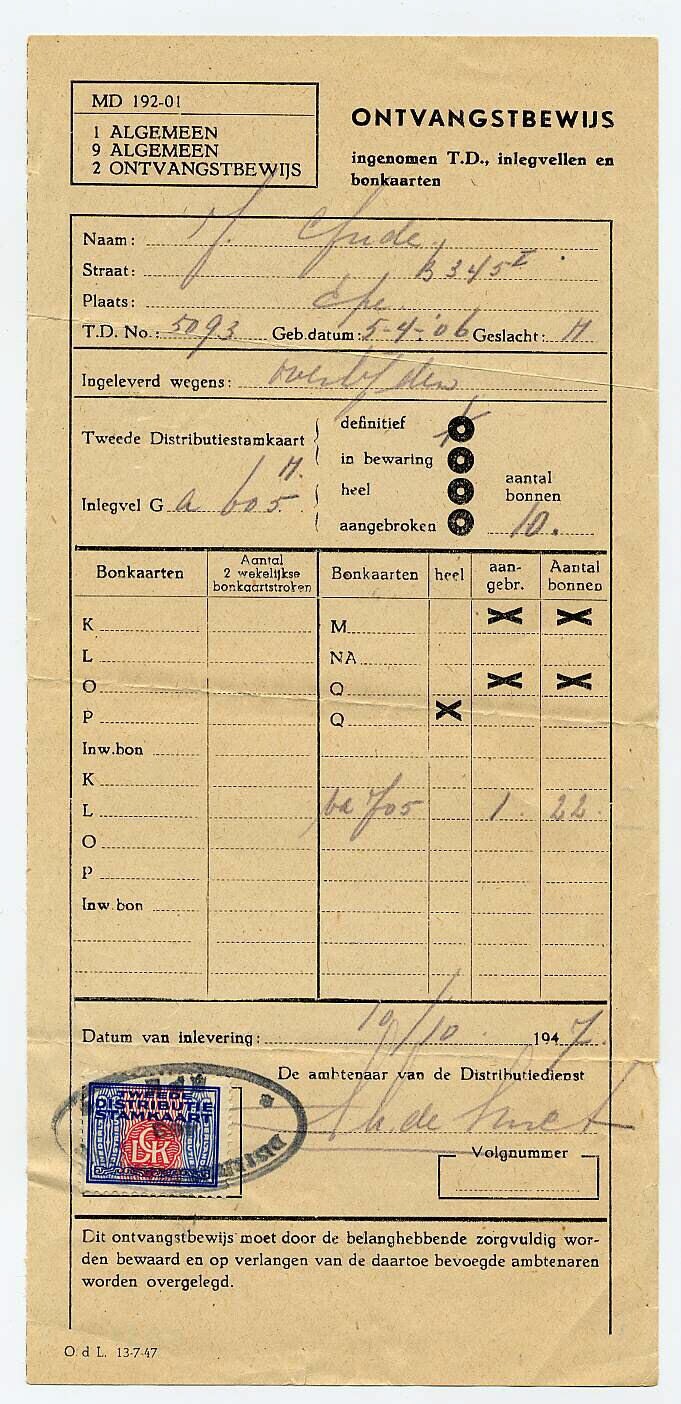 MD 192-01
1 ALGEMEEN
9 ALGEMEEN
2 ONTVANGSTBEWIJS
ONTVANGSTBEWIJS
ingenomen T.D., inlegvellen en
bonkaarten
Naam:
Straat: B 345 I
Plaats: Epe
T.D. No.: 5093 Geb.datum: 5-4-'06 Geslacht: M
Ingeleverd wegens: overlijden
Tweede Distributiestamkaart
definitief
in bewaring
Inlegvel G a 605 M.
heel
aangebroken
aantal
bonnen
10.
Bonkaarten Aantal 2 wekelijkse bonkaartstroken Bonkaarten heel aan-gebr. Aantal bonnen
K M X X
L NA
O O X X
P Q X
Inw.bon
K
L 705 1. 22.
O
P
Inw.bon
Datum van inlevering: 10/10 1947.
De ambtenaar van de Distributiedienst
TWEEDE
DISTRIBUTIE
STAMKAART
Volgnummer
Dit ontvangstbewijs moet door de belanghebbende zorgvuldig wor-
den bewaard en op verlangen van de daartoe bevoegde ambtenaren
worden overgelegd.
O. d L. 13-7-47